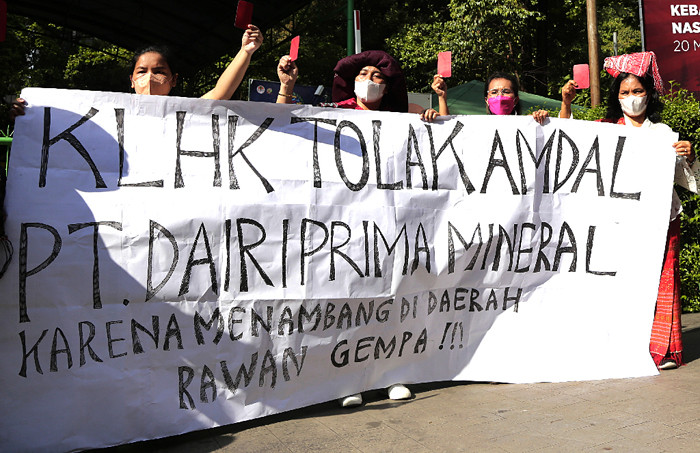 KLHK TOLAK AMDAL
PT. DAIRI PRIMA MINERAL
KARENA MENAMBANG DI DAERAH
RAWAN GEMPA !!!
KEBA
NAS
20 M